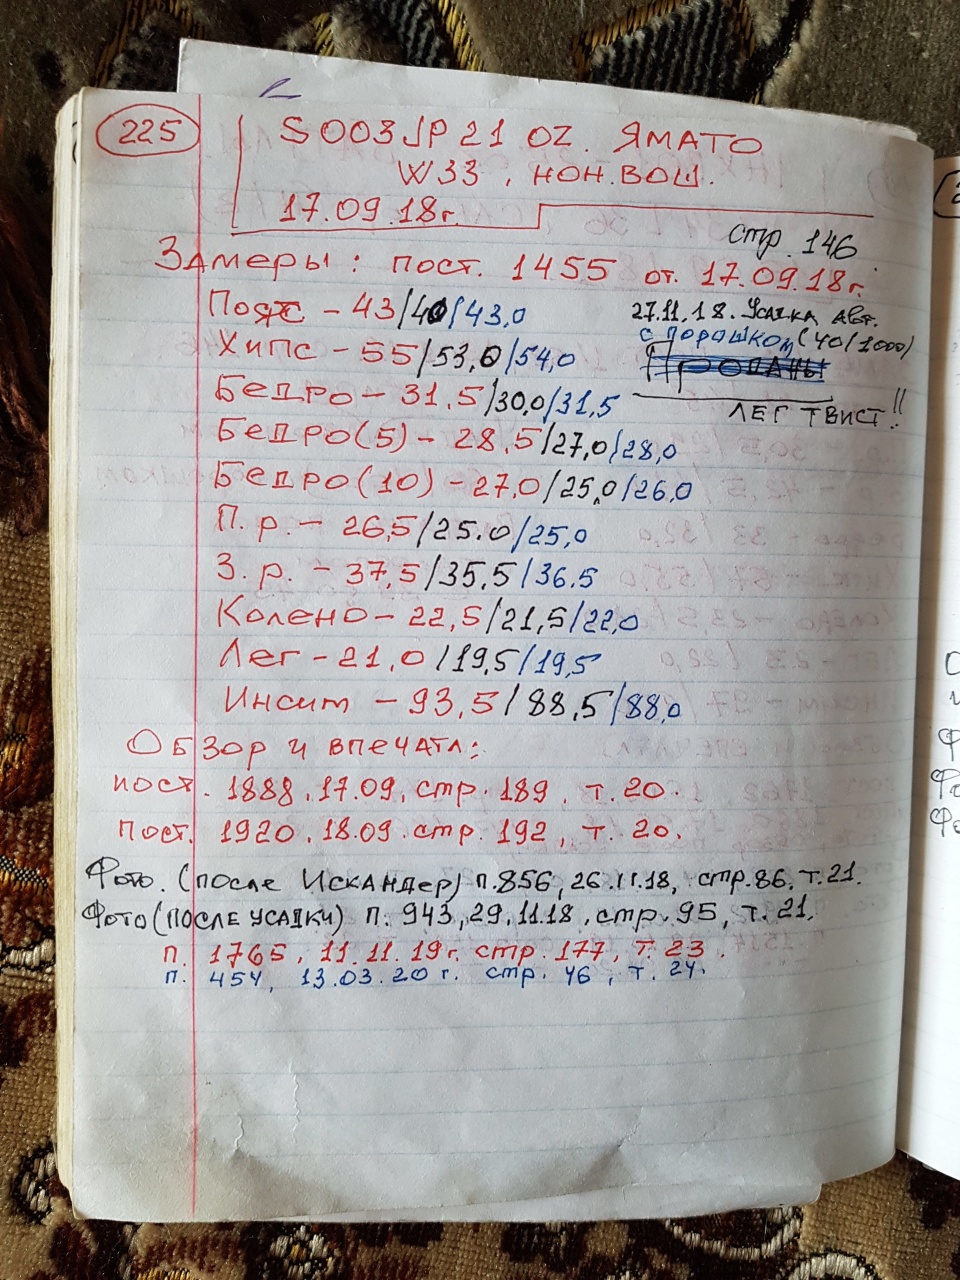 225
S003JP 21 OZ. ЯМАТО
W33, НОН.ВОШ.
17.09.18г.
стр. 146
Замеры: пост. 1455 от. 17.09.18г.
Пояс - 43/40/43,0
27.11.18. Усадка авт.
с порошком (40/1000)
Хипс - 55/53,0/54,0
Проданы
Бедро - 31.5/30,0/31,5
ЛЕГ ТВИСТ!!
Бедро(5) - 28,5/27,0/28,0
Бедро(10) - 27,0/25,0/26,0
П.р. - 26,5/25.0/25,0
З.р. - 37,5/35,5/36.5
Колено - 22,5/21,5/22,0
Лег - 21,0/19,5/19,5
Инсим - 93,5/88,5/88,0
Обзор и впечатл:
пост. 1888.17.09, стр. 189, т.20.
пост. 1920.18.09.стр. 192, т.20.
Фото. (после Искандер) п.856, 26.11.18, стр.86, т.21.
Фото(после усадки) п. 943,29.11.18.стр.95, т.21,
п. 1765, 11.11.19г. стр. 177, т.23.
п. 454, 13.03.20г. стр. 46, т.24.